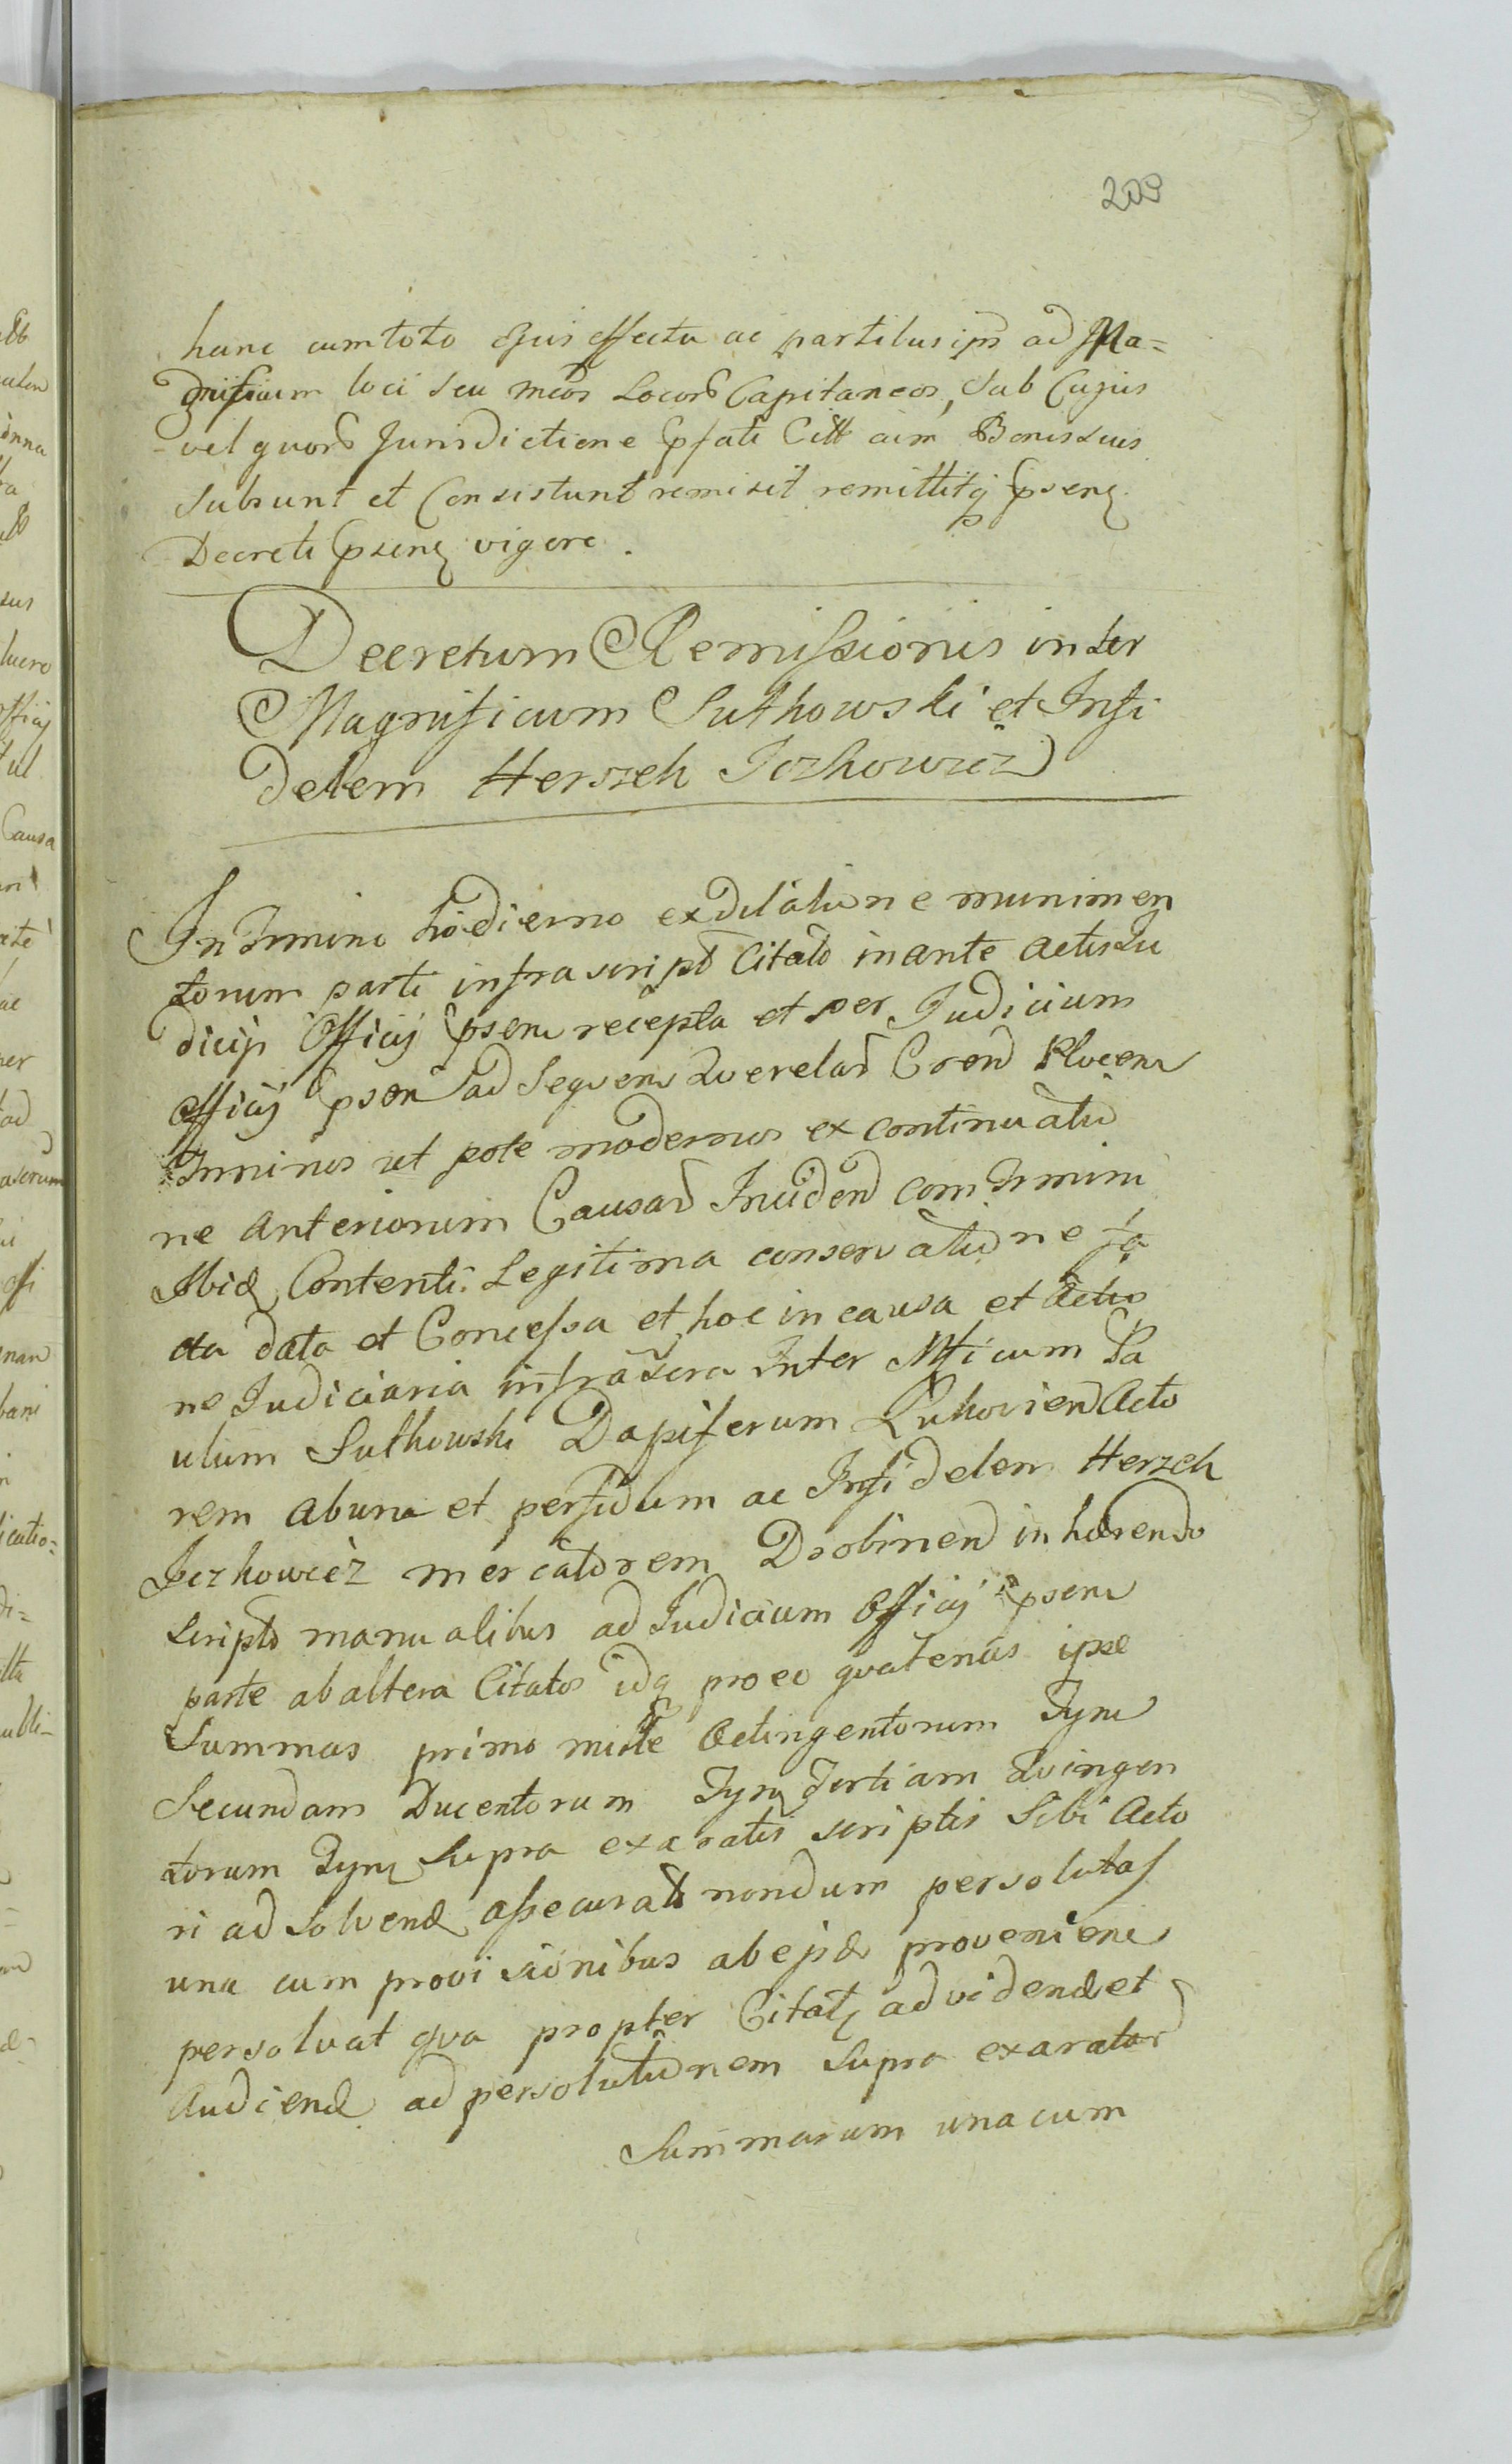 209
hanc cum toto ejus effectu ac partibus ips ad Ma=
gnificum loci seu mcos Locorb Capitaneos, sub Cujus
vel quorb Jurisdictione psati Citt cum Bonis suis
subsunt et Consistunt remisit remittitq psenq
Decreti psenq vigore.
Decretum Remissionis inter
Magnificum Suthowski et Infi
delem Herszek Jczkowicz
In Trmino hodierno ex dilatione munimen
torum parti infrascript Citato in ante actis Ju
dicij Officij psens recepta et per Judicium
officij psen ad sequens Querelar Cron Plocens
Trminus ut pote modernus ex continuatio
ne anteriorum Causar Inciden com Trmini
Ibid Contenti Legitima conservatione fa
cta data et Concessa et hoc in causa et actio
ne Judiciaria infrascra Inter Mficum Pa
ulum Suthowski Dapiferum Lukovien Acto
rem ab una et perfidum ac Infidelem Herzek
Jczkowicz mercatorem Dobrinen inhærendo
scripts manualibus ad Judicium Officij psens
parte ab altera Citatos idq pro eo quatenus ipse
Summas primo mille Octingentorum Tyns
Secundam Ducentorum Tynq Tertiam Quingen
torum Tynq supra exaratis scriptis sibi Acto
ri ad solvend assecurats nondum persolutas
una cum provisionibus ab ejsd proveniens
persolvat qua propter Citatq ad vidend et
Audiend ad persolutionem supra exaratar
Summarum una cum